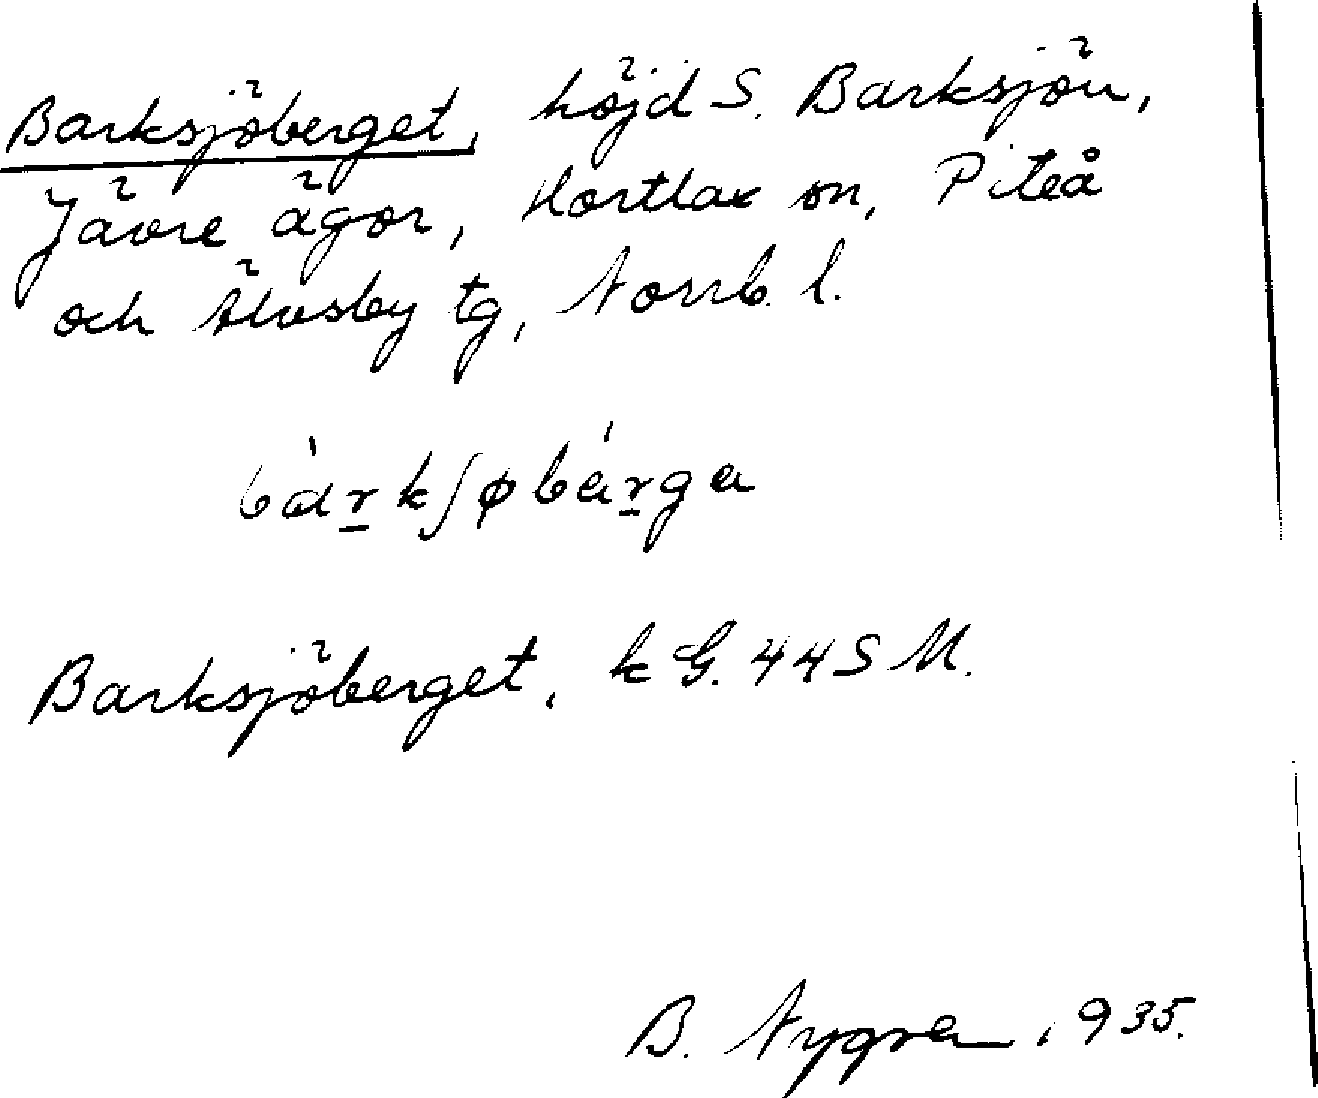 Barksjöberget, höjd S. Barksjön,
Jävre ägor, Hortlax sn, Piteå
och Älvsby tg, Norrb. l.
bàrkʃøbárga
Barksjöberget, k G. 44 S M.
B. Nygren, 935.